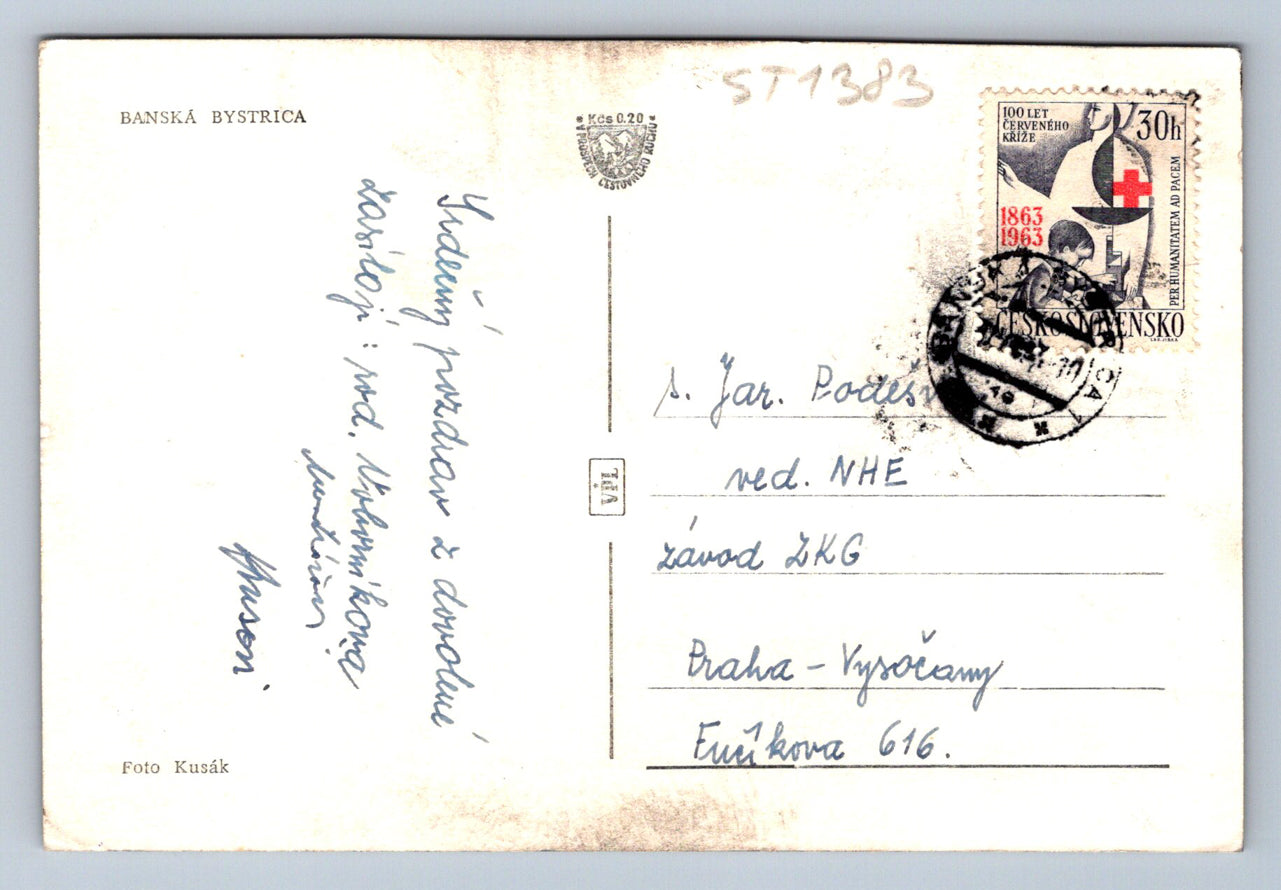 BANSKÁ BYSTRICA
Kčs 0.20
V PROSPĚCH CESTOVNÉHO RUCHU
ST1383
100 LET
ČERVENÉHO
KŘÍŽE
30h
1863
1963
PER HUMANITATEM AD PACEM
ČESKOSLOVENSKO
BANSKÁ BYSTRICA 1
Srdečný pozdrav z dovolené
zasílají: rod. Výborníkova
s. Jar.
ved. NHE
závod ZKG
Praha - Vysočany
Fučíkova 616.
Foto Kusák